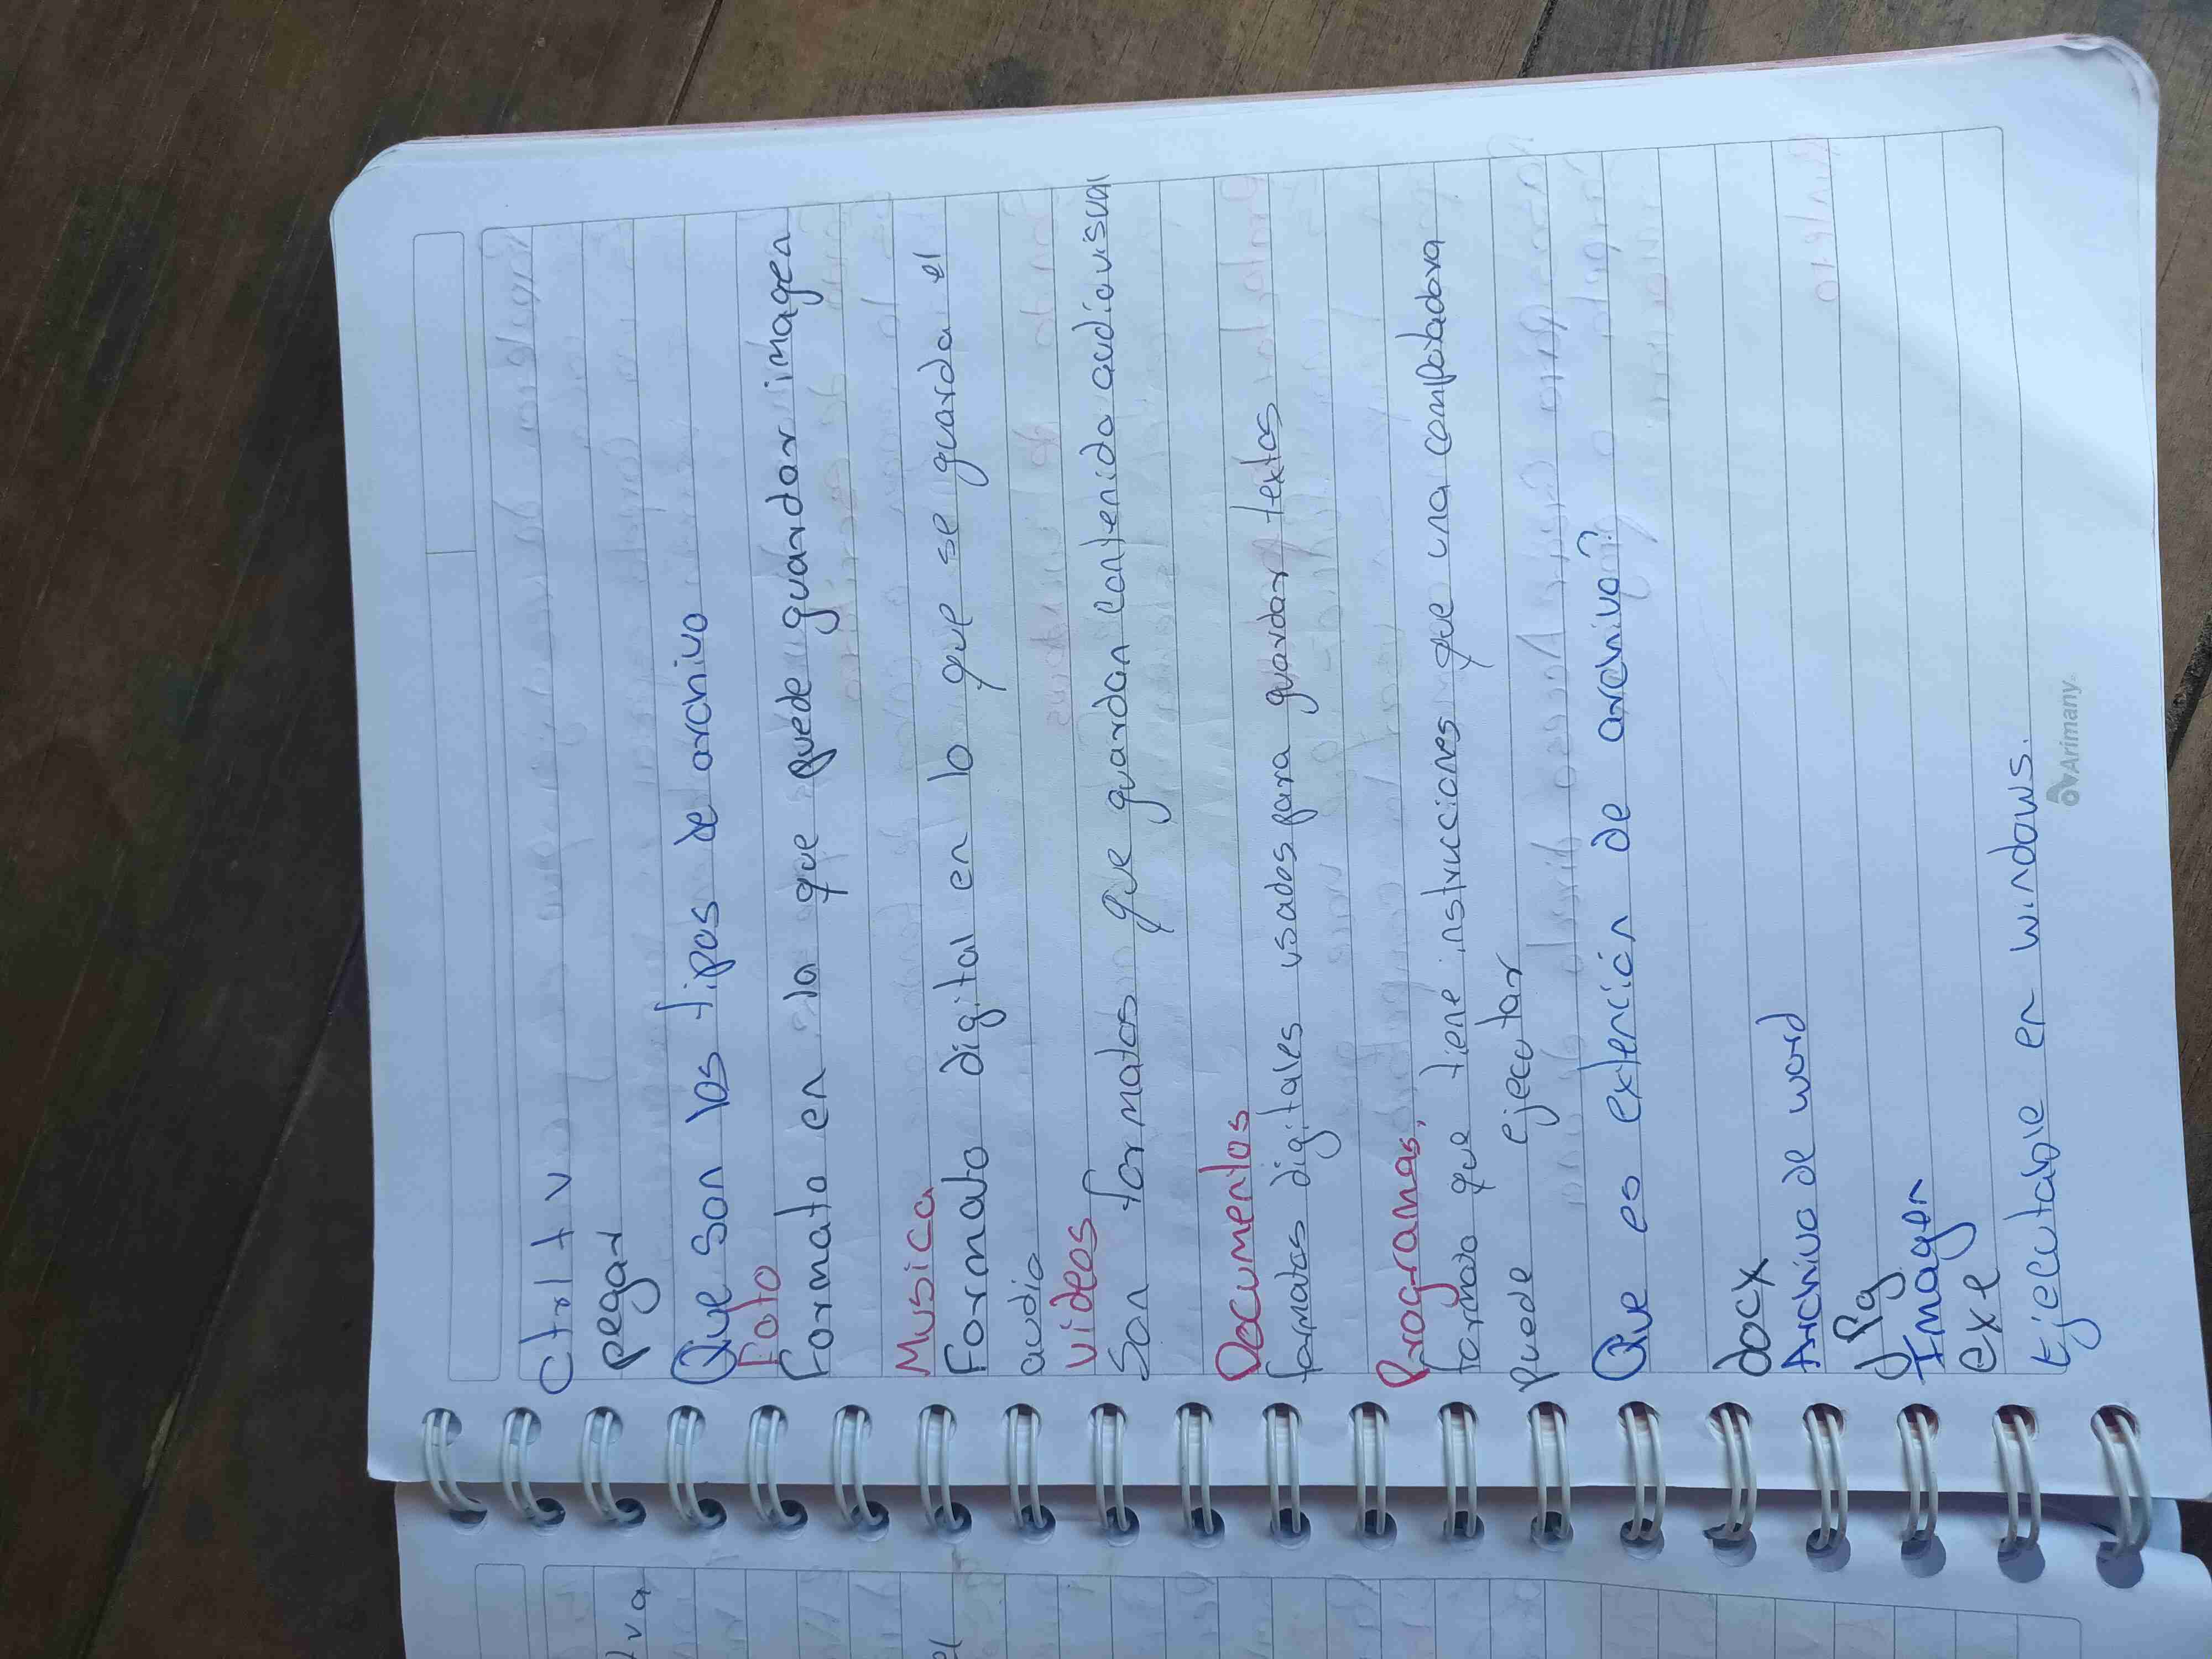 Ctrl + v
pegar
Que son los tipos de archivo
Foto
Formato en la que puede guardar imagen
Musica
Formato digital en lo que se guarda el
audio
Videos
Son formatos que guardan contenido audiovisual
Documentos
formatos digitales usados para guardar textos
Programas.
formato que tiene instrucciones que una computadora
puede ejecutar
Que es extención de archivo?
docx
Archivo de word
JPg
Imagen
exe
Ejecutable en windows.
Arimany